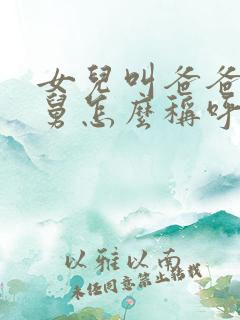 女兒叫爸爸
舅怎麼稱呼
以雅以南
未经同意禁止转载